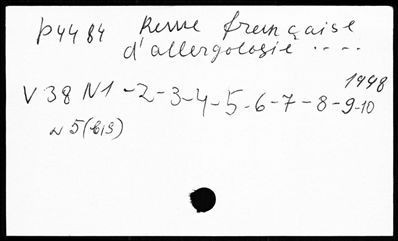 p4484 Revue française
d'allergologie ....
1998
V38 N1-2-3-4-5-6-7-8-9-10
N5(bis)